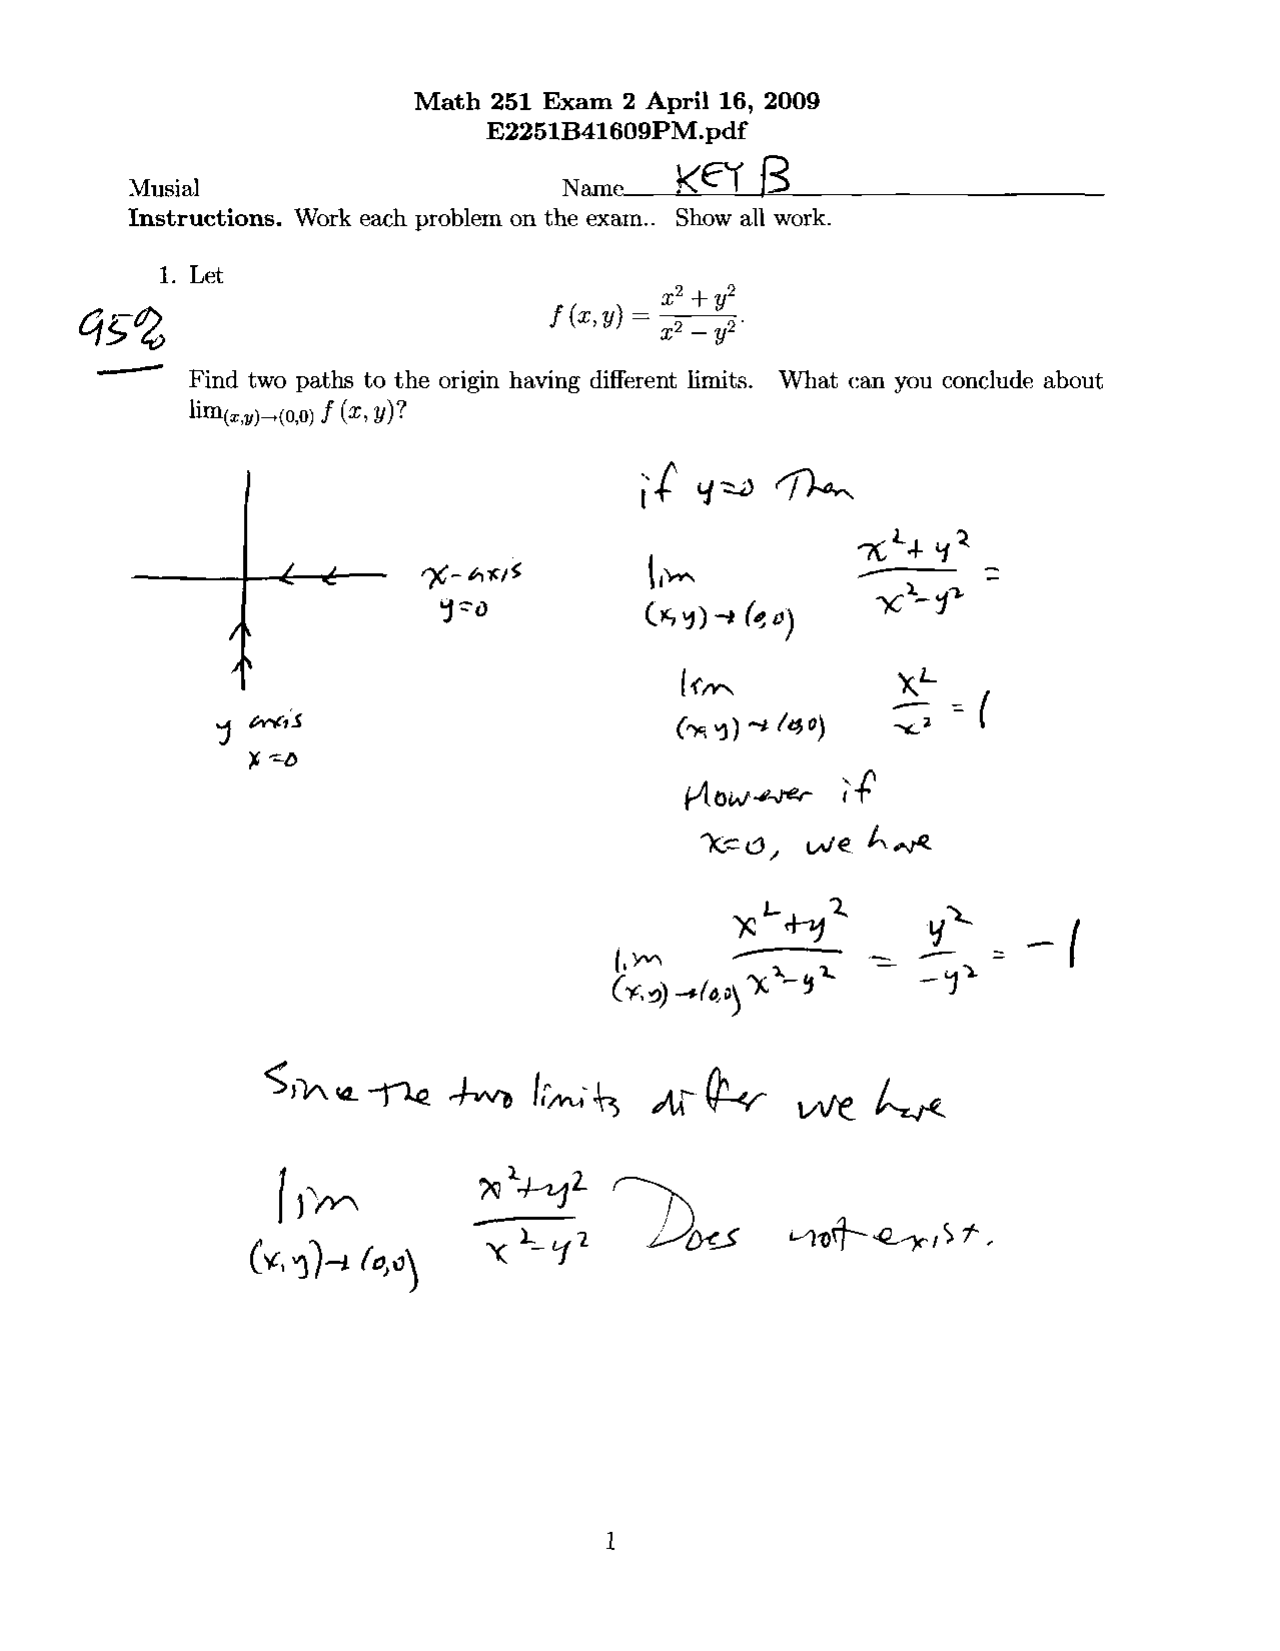 Math 251 Exam 2 April 16, 2009
E2251B41609PM.pdf
Musial Name KEY B
Instructions. Work each problem on the exam.. Show all work.
1. Let
95%
f (x, y) = (x² + y²)/(x² − y²).
Find two paths to the origin having different limits. What can you conclude about
lim(x,y)→(0,0) f (x, y)?
if y=0 Then
lim (x,y)→(0,0) (x²+y²)/(x²-y²) =
x-axis
y=0
lim (x,y)→(0,0) x²/x² = 1
y axis
x=0
However if
x=0, we have
lim (x,y)→(0,0) (x²+y²)/(x²-y²) = y²/-y² = -1
Since The two limits differ we have
lim (x,y)→(0,0) (x²+y²)/(x²-y²) Does not exist.
1